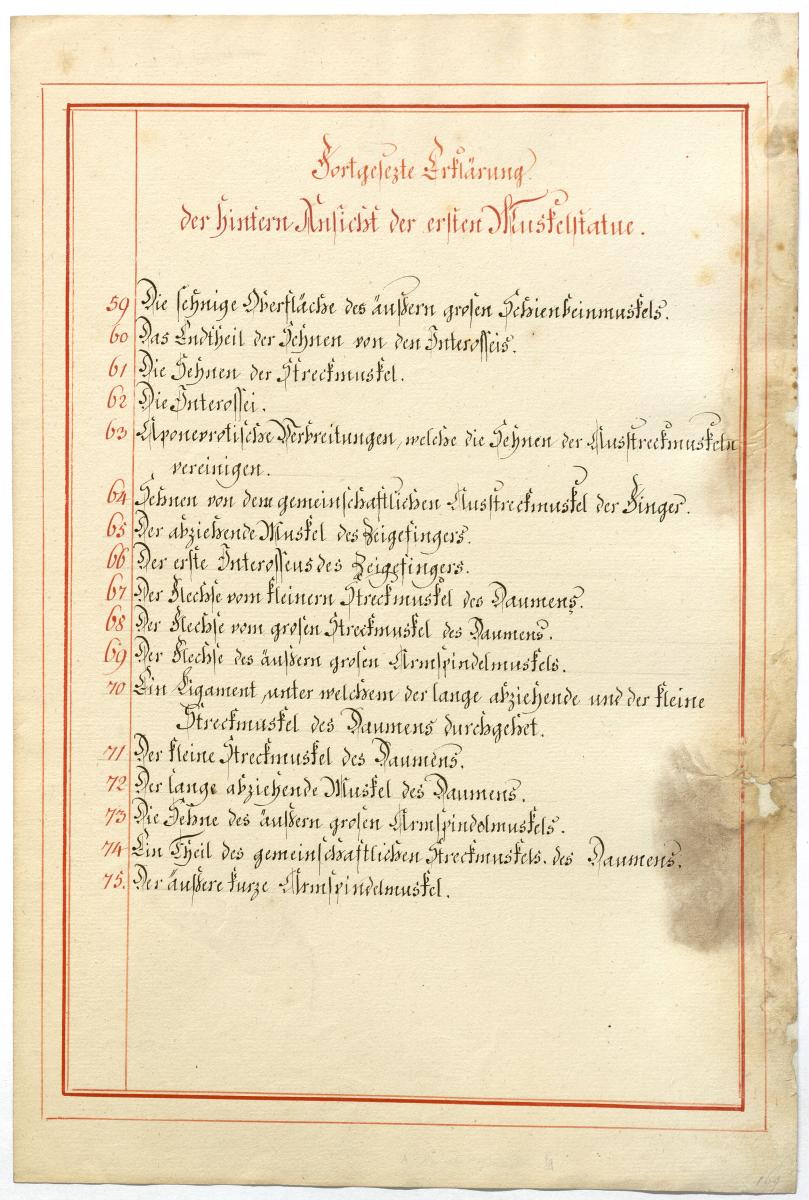 Fortgesezte Erklärung
der hintern Ansicht der ersten Muskelstatue.
59 Die sehnige Oberfläche des äußern grosen Schienbeinmuskels.
60 Das Endtheil der Sehnen von den Interosseis.
61 Die Sehnen der Streckmuskel.
62 Die Interossei.
63 Aponevrotische Verbreitungen, welche die Sehnen der Ausstreckmuskeln
vereinigen.
64 Sehnen von dem gemeinschaftlichen Ausstreckmuskel der Finger.
65 Der abziehende Muskel des Zeigefingers.
66 Der erste Interosseus des Zeigefingers.
67 Der Flechse vom kleinern Streckmuskel des Daumens.
68 Der Flechse vom grosen Streckmuskel des Daumens.
69 Der Flechse des äußern grosen Armspindelmuskels.
70 Ein Ligament, unter welchem der lange abziehende und der kleine
Streckmuskel des Daumens durchgehet.
71 Der kleine Streckmuskel des Daumens.
72 Der lange abziehende Muskel des Daumens.
73 Die Sehne des äußern grosen Armspindelmuskels.
74 Ein Theil des gemeinschaftlichen Streckmuskels des Daumens.
75. Der äußere kurze Armspindelmuskel.